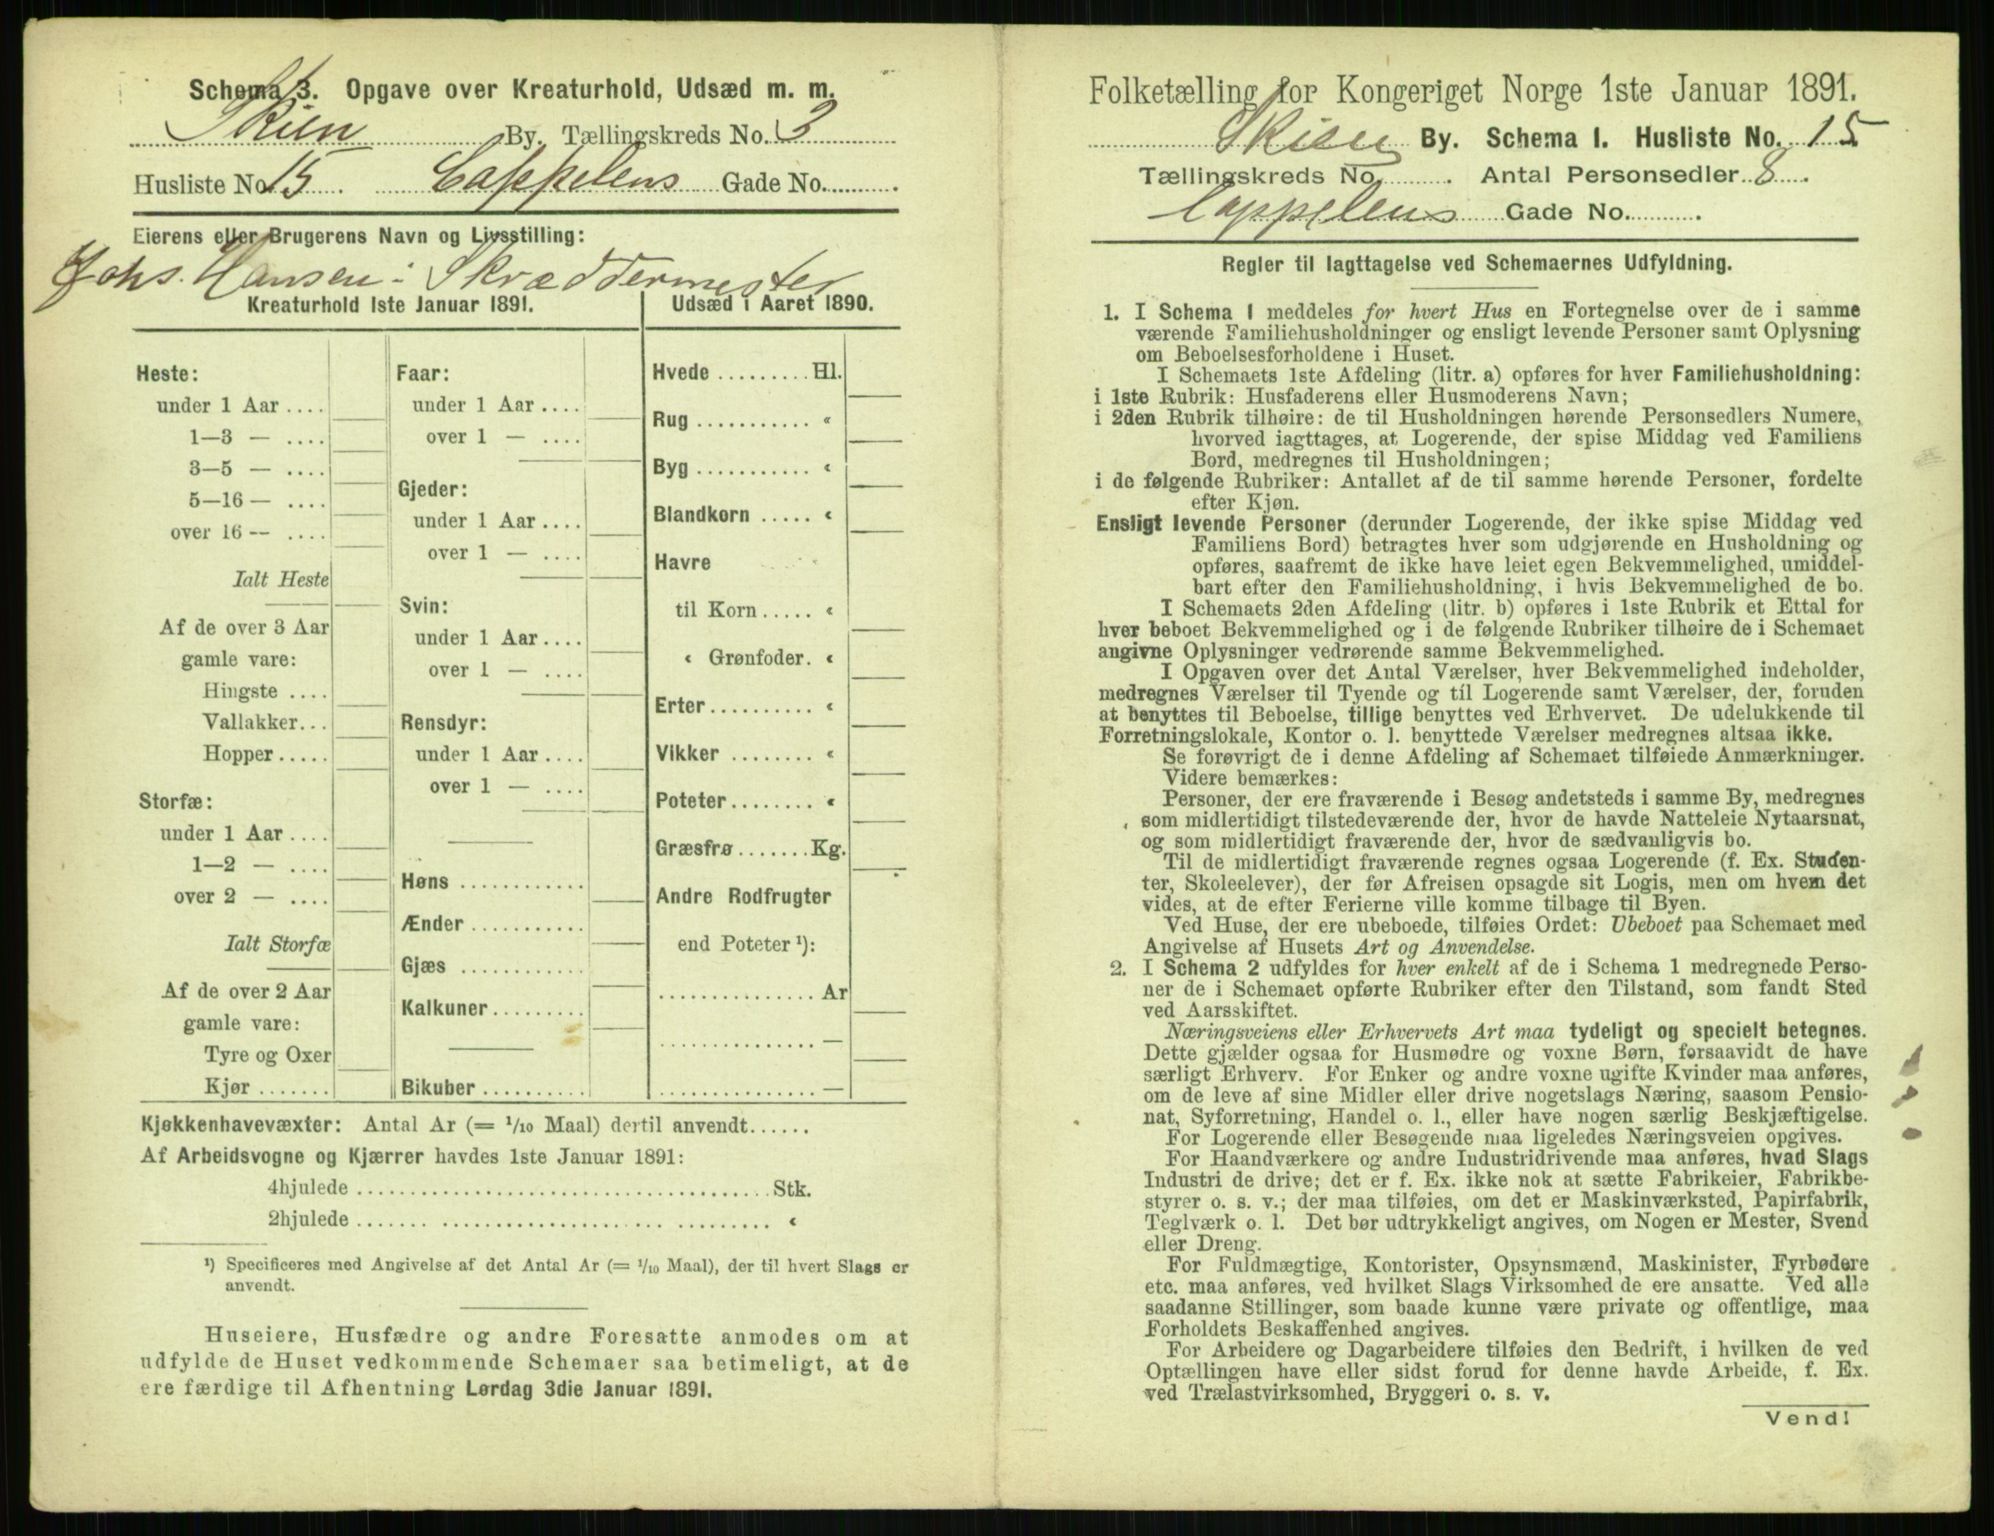 Schema 3. Opgave over Kreaturhold, Udsæd m. m.
Skien By. Tællingskreds No. 3
Husliste No. 15. Cappelens Gade No. .
Eierens eller Brugerens Navn og Livsstilling:
Johs. Hansen: Skræddermester
Kreaturhold 1ste Januar 1891.
Heste:
under 1 Aar ....
1—3 — ....
3—5 — ....
5—16 — ....
over 16 — ....
Ialt Heste
Af de over 3 Aar
gamle vare:
Hingste ....
Vallakker...
Hopper.....
Storfæ:
under 1 Aar ....
1—2 — ....
over 2 — ....
Ialt Storfæ
Af de over 2 Aar
gamle vare:
Tyre og Oxer
Kjør .......
Faar:
under 1 Aar ....
over 1 — ....
Gjeder:
under 1 Aar ....
over 1 — ....
Svin:
under 1 Aar ....
over 1 — ....
Rensdyr:
under 1 Aar ....
over 1 — ....
Høns ............
Ænder ...........
Gjæs ............
Kalkuner.........
Bikuber ..........
Udsæd i Aaret 1890.
Hvede .........Hl.
Rug ........... «
Byg ........... «
Blandkorn ..... «
Havre
til Korn ..... «
« Grønfoder. «
Erter.......... «
Vikker ........ «
Poteter........ «
Græsfrø.......Kg.
Andre Rodfrugter
end Poteter ¹):
...............Ar
............... —
............... —
Kjøkkenhavevæxter: Antal Ar (= 1/10 Maal) dertil anvendt......
Af Arbeidsvogne og Kjærrer havdes 1ste Januar 1891:
4hjulede .......................................Stk.
2hjulede ....................................... «
¹) Specificeres med Angivelse af det Antal Ar (= 1/10 Maal), der til hvert Slags er
anvendt.
Huseiere, Husfædre og andre Foresatte anmodes om at
udfylde de Huset vedkommende Schemaer saa betimeligt, at de
ere færdige til Afhentning Lørdag 3die Januar 1891.
Folketælling for Kongeriget Norge 1ste Januar 1891.
Skien By. Schema I. Husliste No. 15
Tællingskreds No. . Antal Personsedler 8.
Cappelens Gade No. .
Regler til Iagttagelse ved Schemaernes Udfyldning.
1. I Schema 1 meddeles for hvert Hus en Fortegnelse over de i samme
værende Familiehusholdninger og ensligt levende Personer samt Oplysning
om Beboelsesforholdene i Huset.
I Schemaets 1ste Afdeling (litr. a) opføres for hver Familiehusholdning:
i 1ste Rubrik: Husfaderens eller Husmoderens Navn;
i 2den Rubrik tilhøire: de til Husholdningen hørende Personsedlers Numere,
hvorved iagttages, at Logerende, der spise Middag ved Familiens
Bord, medregnes til Husholdningen;
i de følgende Rubriker: Antallet af de til samme hørende Personer, fordelte
efter Kjøn.
Ensligt levende Personer (derunder Logerende, der ikke spise Middag ved
Familiens Bord) betragtes hver som udgjørende en Husholdning og
opføres, saafremt de ikke have leiet egen Bekvemmelighed, umiddel-
bart efter den Familiehusholdning, i hvis Bekvemmelighed de bo.
I Schemaets 2den Afdeling (litr. b) opføres i 1ste Rubrik et Ettal for
hver beboet Bekvemmelighed og i de følgende Rubriker tilhøire de i Schemaet
angivne Oplysninger vedrørende samme Bekvemmelighed.
I Opgaven over det Antal Værelser, hver Bekvemmelighed indeholder,
medregnes Værelser til Tyende og til Logerende samt Værelser, der, foruden
at benyttes til Beboelse, tillige benyttes ved Erhvervet. De udelukkende til
Forretningslokale, Kontor o. l. benyttede Værelser medregnes altsaa ikke.
Se forøvrigt de i denne Afdeling af Schemaet tilføiede Anmærkninger.
Videre bemærkes:
Personer, der ere fraværende i Besøg andetsteds i samme By, medregnes
som midlertidigt tilstedeværende der, hvor de havde Natteleie Nytaarsnat,
og som midlertidigt fraværende der, hvor de sædvanligvis bo.
Til de midlertidigt fraværende regnes ogsaa Logerende (f. Ex. Studen-
ter, Skoleelever), der før Afreisen opsagde sit Logis, men om hvem det
vides, at de efter Ferierne ville komme tilbage til Byen.
Ved Huse, der ere ubeboede, tilføies Ordet: Ubeboet paa Schemaet med
Angivelse af Husets Art og Anvendelse.
2. I Schema 2 udfyldes for hver enkelt af de i Schema 1 medregnede Perso-
ner de i Schemaet opførte Rubriker efter den Tilstand, som fandt Sted
ved Aarsskiftet.
Næringsveiens eller Erhvervets Art maa tydeligt og specielt betegnes.
Dette gjælder ogsaa for Husmødre og voxne Børn, forsaavidt de have
særligt Erhverv. For Enker og andre voxne ugifte Kvinder maa anføres,
om de leve af sine Midler eller drive nogetslags Næring, saasom Pensio-
nat, Syforretning, Handel o. l., eller have nogen særlig Beskjæftigelse.
For Logerende eller Besøgende maa ligeledes Næringsveien opgives.
For Haandværkere og andre Industridrivende maa anføres, hvad Slags
Industri de drive; det er f. Ex. ikke nok at sætte Fabrikeier, Fabrikbe-
styrer o. s. v.; der maa tilføies, om det er Maskinværksted, Papirfabrik,
Teglværk o. l. Det bør udtrykkeligt angives, om Nogen er Mester, Svend
eller Dreng.
For Fuldmægtige, Kontorister, Opsynsmænd, Maskinister, Fyrbødere
etc. maa anføres, ved hvilket Slags Virksomhed de ere ansatte. Ved alle
saadanne Stillinger, som baade kunne være private og offentlige, maa
Forholdets Beskaffenhed angives.
For Arbeidere og Dagarbeidere tilføies den Bedrift, i hvilken de ved
Optællingen have eller sidst forud for denne havde Arbeide, f. Ex.
ved Trælastvirksomhed, Bryggeri o. s. v.
Vend!